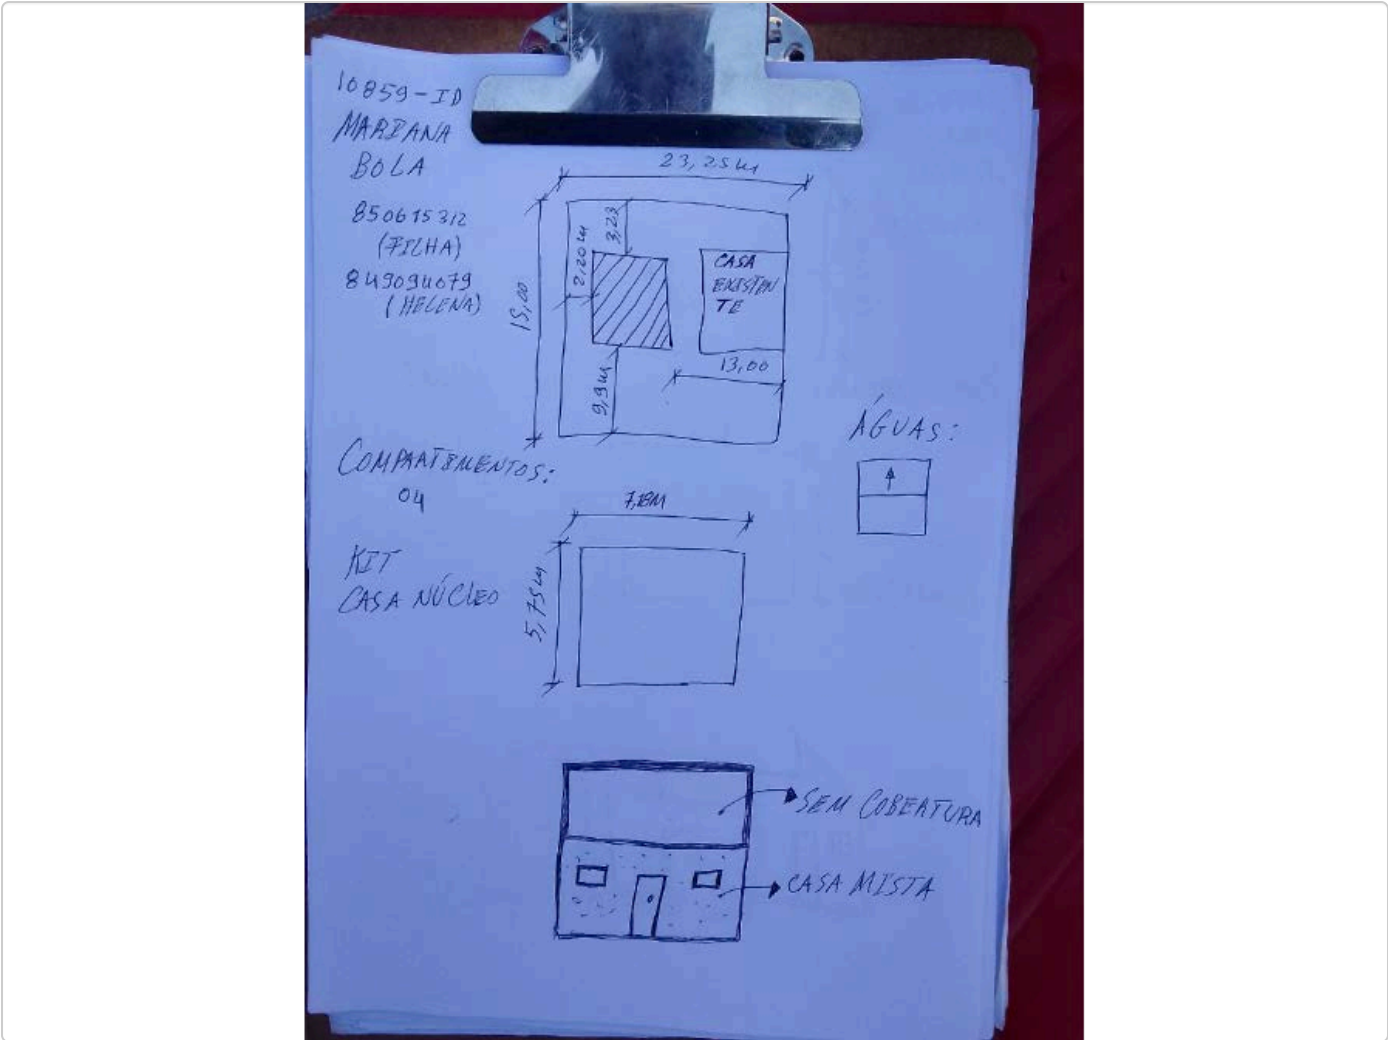 10859-ID
MARIANA
BOLA
850615312
(FILHA)
849094079
(HELENA)
23,25m
3,23
2,20m
15,00
CASA
EXISTEN
TE
13,00
9,9m
ÁGUAS:
COMPARTIMENTOS:
04
7,18M
KIT
CASA NÚCLEO
5,75m
SEM COBERTURA
CASA MISTA